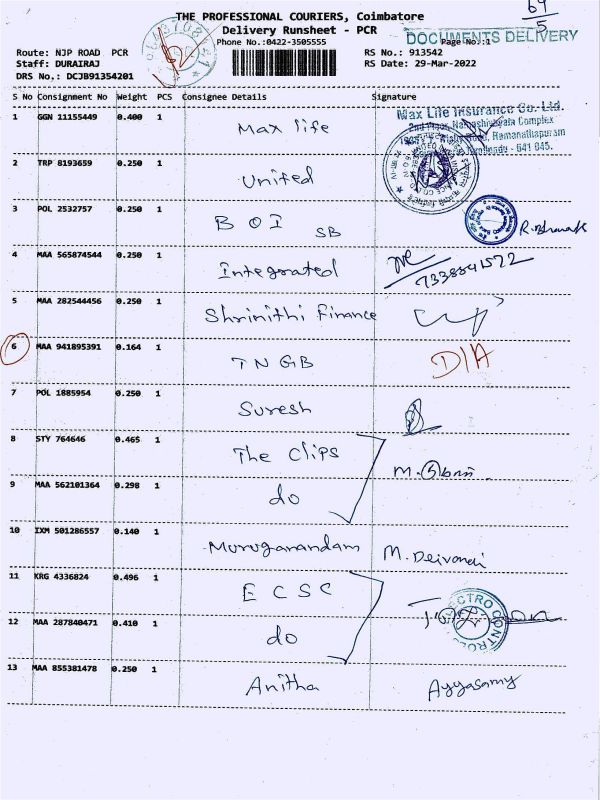 64
5
THE PROFESSIONAL COURIERS, Coimbatore
Delivery Runsheet - PCR
Phone No.:0422-3505555
Page No.:1
DOCUMENTS DELIVERY
Route: NJP ROAD PCR
RS No.: 913542
Staff: DURAIRAJ
RS Date: 29-Mar-2022
DRS No.: DCJB91354201
S No Consignment No Weight PCS Consignee Details Signature
1 GGN 11155449 0.400 1 Max life
Max Life Insurance Co. Ltd.
2 TRP 8193659 0.250 1 United
3 POL 2532757 0.250 1 BOI SB
4 MAA 565874544 0.250 1 Integrated 7338841522
5 MAA 282544456 0.250 1 Shrinithi Finance
6 MAA 941895391 0.164 1 TNGB D/A
7 POL 1885954 0.250 1 Suresh
8 STY 764646 0.465 1 The Clips
9 MAA 562101364 0.298 1 do
10 IXM 501286557 0.140 1 Muruganandam M. Deivanai
11 KRG 4336824 0.496 1 ECSC
12 MAA 287840471 0.410 1 do
13 MAA 855381478 0.250 1 Anitha Ayyasamy